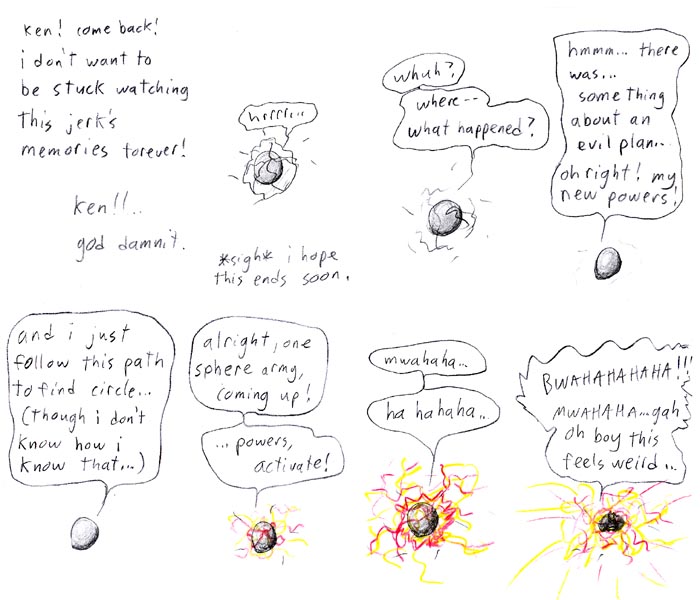 ken! come back!
i don't want to
be stuck watching
this jerk's
memories forever!
ken!!..
god damnit.
hrrrr...
*sigh* i hope
this ends soon.
whuh?,
where--
what happened?
hmmm... there
was...
something
about an
evil plan...
oh right! my
new powers!
and i just
follow this path
to find circle...
(though i don't
know how i
know that...)
alright, one
sphere army,
coming up!
... powers,
activate!
mwahaha...
ha hahaha..
BWAHAHAHAHA!!!
MWAHAHA...gah
oh boy this
feels weird...